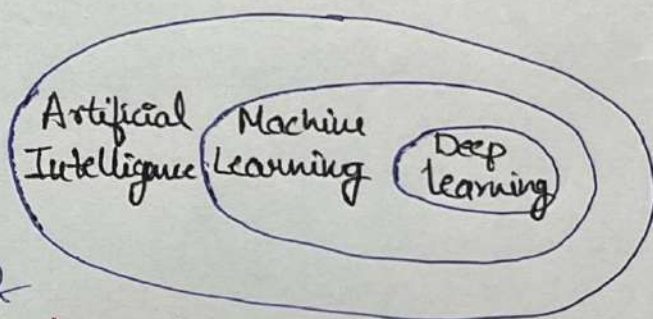 Artificial
Intelligence
Machine
Learning
Deep
Learning